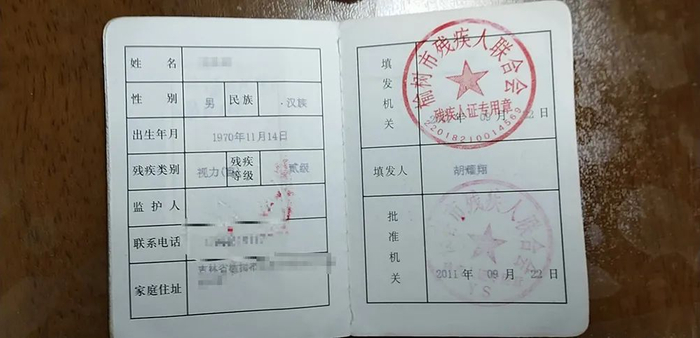 姓 名
性 别 男 民族 汉族
出生年月 1970年11月14日
残疾类别 视力 残疾等级 贰级
监护人
联系电话
家庭住址 吉林省榆树市
填发机关
榆树市残疾人联合会
残疾人证专用章
22018210014569
年 09 月 22日
填发人 胡耀翔
批准机关
榆树市残疾人联合会
2011 年 09 月 22 日